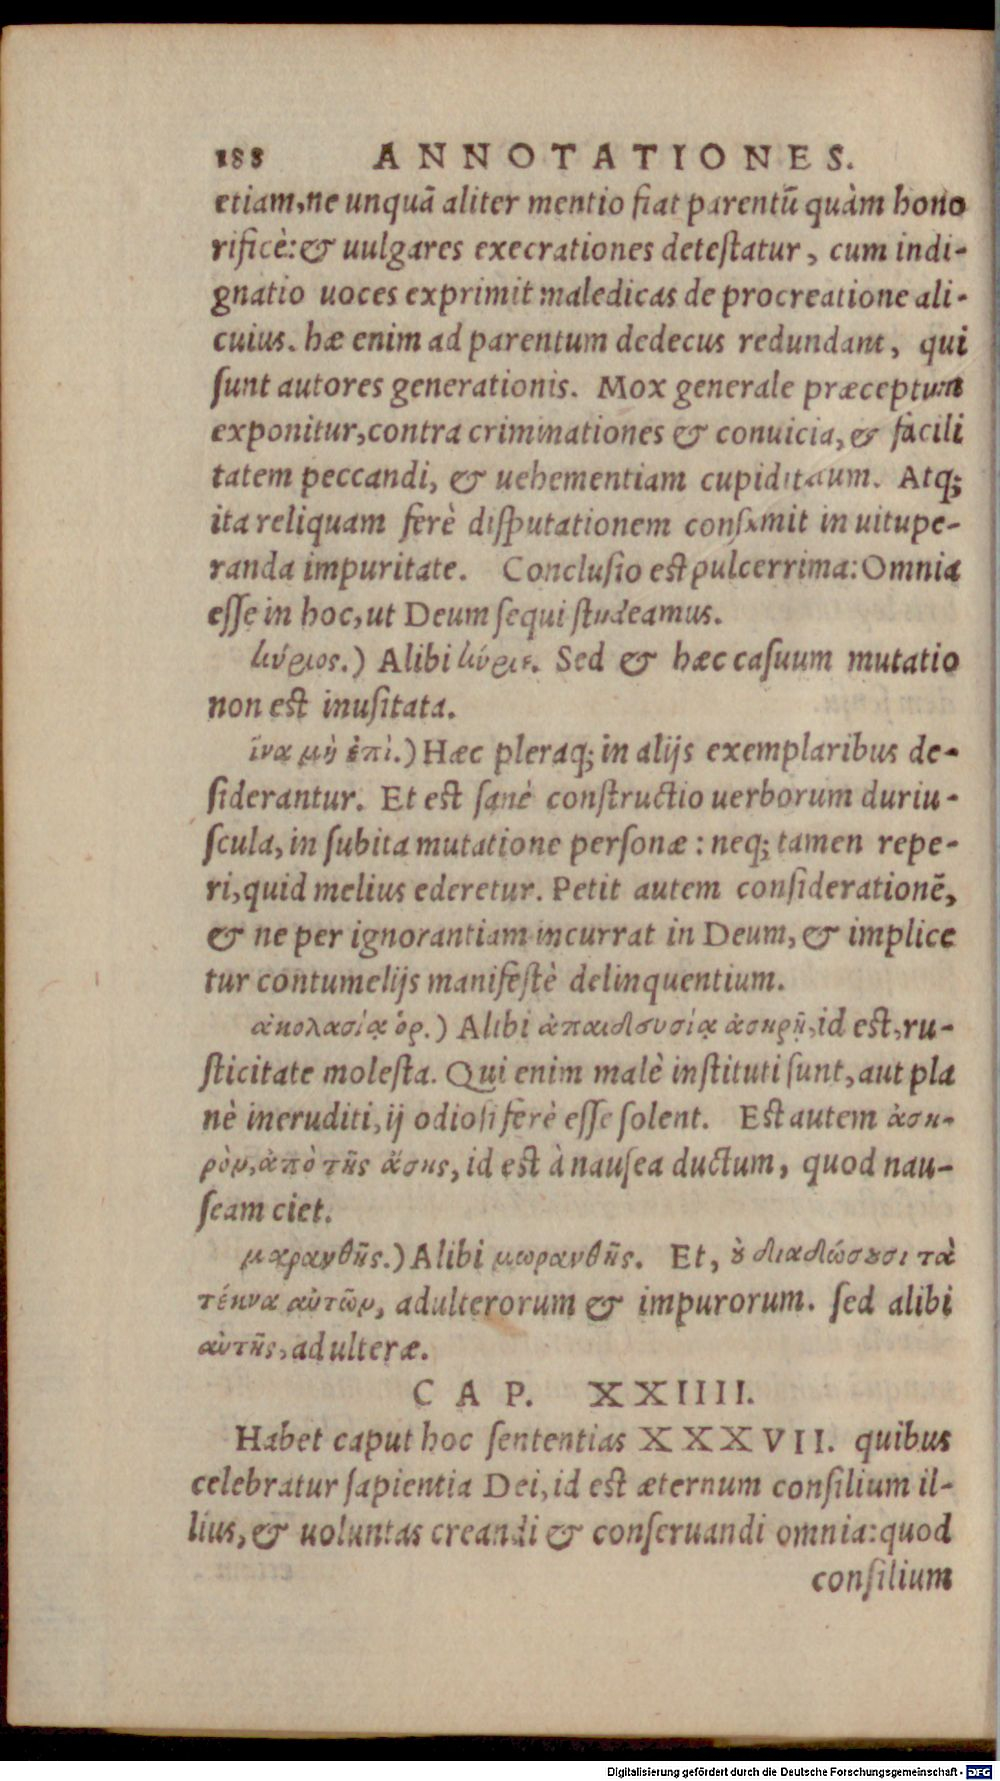 188 ANNOTATIONES.
etiam, ne unquā aliter mentio fiat parentū quàm hono
rificè: & uulgares execrationes detestatur, cum indi-
gnatio uoces exprimit maledicas de procreatione ali-
cuius. hæ enim ad parentum dedecus redundant, qui
sunt autores generationis. Mox generale præceptum
exponitur, contra criminationes & conuicia, & facili
tatem peccandi, & uehementiam cupiditatum. Atq;
ita reliquam ferè disputationem consumit in uitupe-
randa impuritate. Conclusio est pulcerrima: Omnia
esse in hoc, ut Deum sequi studeamus.
κύριος.) Alibi κύριε. Sed & hæc casuum mutatio
non est inusitata.
ἵνα μὴ ἐπὶ.) Hæc pleraq; in alijs exemplaribus de-
siderantur. Et est sanè constructio uerborum duriu-
scula, in subita mutatione personæ: neq; tamen repe-
ri, quid melius ederetur. Petit autem considerationē,
& ne per ignorantiam incurrat in Deum, & implice
tur contumelijs manifestè delinquentium.
ἀκολασίᾳ ὁρ.) Alibi ἀπαιδευσίᾳ ἀσηρῇ, id est, ru-
sticitate molesta. Qui enim malè instituti sunt, aut pla
nè ineruditi, ij odiosi ferè esse solent. Est autem ἀση-
ρὸν, ἀπὸ τῆς ἄσης, id est à nausea ductum, quod nau-
seam ciet.
μαρανθῆς.) Alibi μωρανθῆς. Et, ȣ̓ διαδώσȣσι τὰ
τέκνα αὐτῶν, adulterorum & impurorum. sed alibi
αὐτῆς, adulteræ.
CAP. XXIIII.
Habet caput hoc sententias XXXVII. quibus
celebratur sapientia Dei, id est æternum consilium il-
lius, & uoluntas creandi & conseruandi omnia: quod
consilium
Digitalisierung gefördert durch die Deutsche Forschungsgemeinschaft - DFG